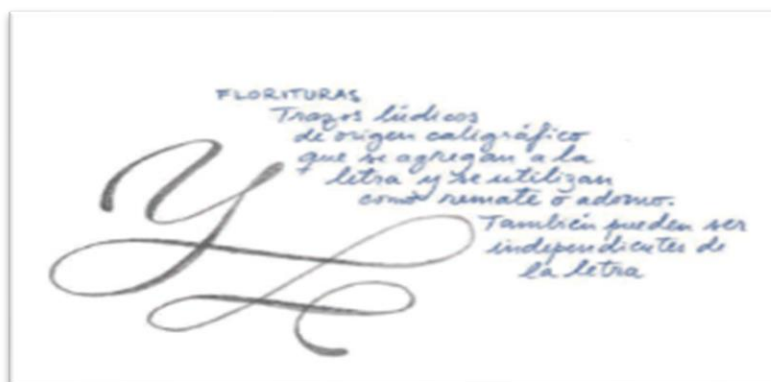 FLORITURAS
Trazos lúdicos
de origen caligráfico
que se agregan a la
letra y se utilizan
como remate o adorno.
También pueden ser
independientes de
la letra
Y